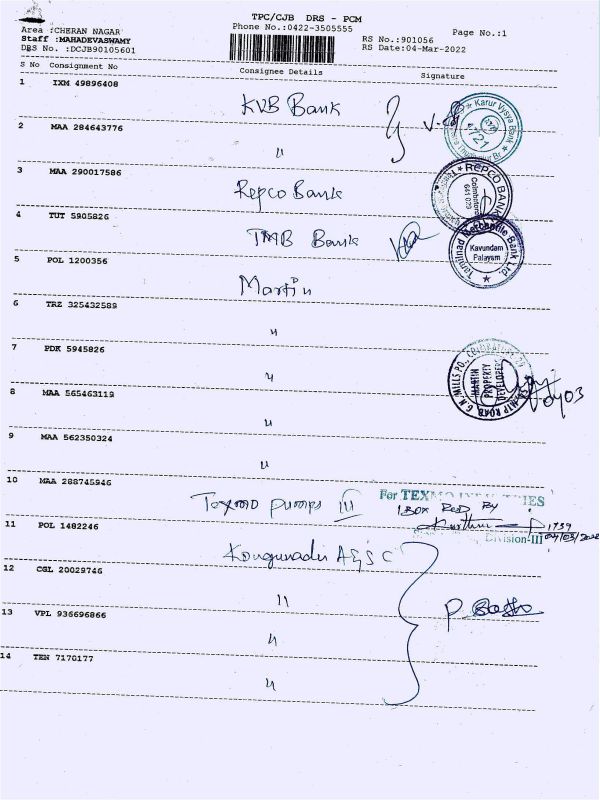 TPC/CJB DRS - PCM
Area :CHERAN NAGAR
Phone No.:0422-3505555
Page No.:1
Staff :MAHADEVASWAMY
RS No.:901056
DRS No. :DCJB90105601
RS Date:04-Mar-2022
S No Consignment No
Consignee Details
Signature
1 IXM 49896408
KVB Bank
Karur Vysya Bank
4721
2 MAA 284643776
"
3 MAA 290017586
Repco Bank
REPCO BANK
Coimbatore
641 029
4 TUT 5905826
TMB Bank
Tamilnad Mercantile Bank Ltd.
Kavundam
Palayam
5 POL 1200356
Martin
6 TRZ 325432589
"
7 PDK 5945826
"
G.N. MILLS PO., COIMBATORE-29
MARTIN
PROPERTY
DEVELOPERS
8 MAA 565463119
"
9 MAA 562350324
"
10 MAA 288745946
Texmo Pumps III
For TEXMO INDUSTRIES
1 BOX RED BY
11 POL 1482246
Division-III
04/03/2022
Kongunadu A&SC
12 CGL 20029746
"
13 VPL 936696866
"
14 TEN 7170177
"